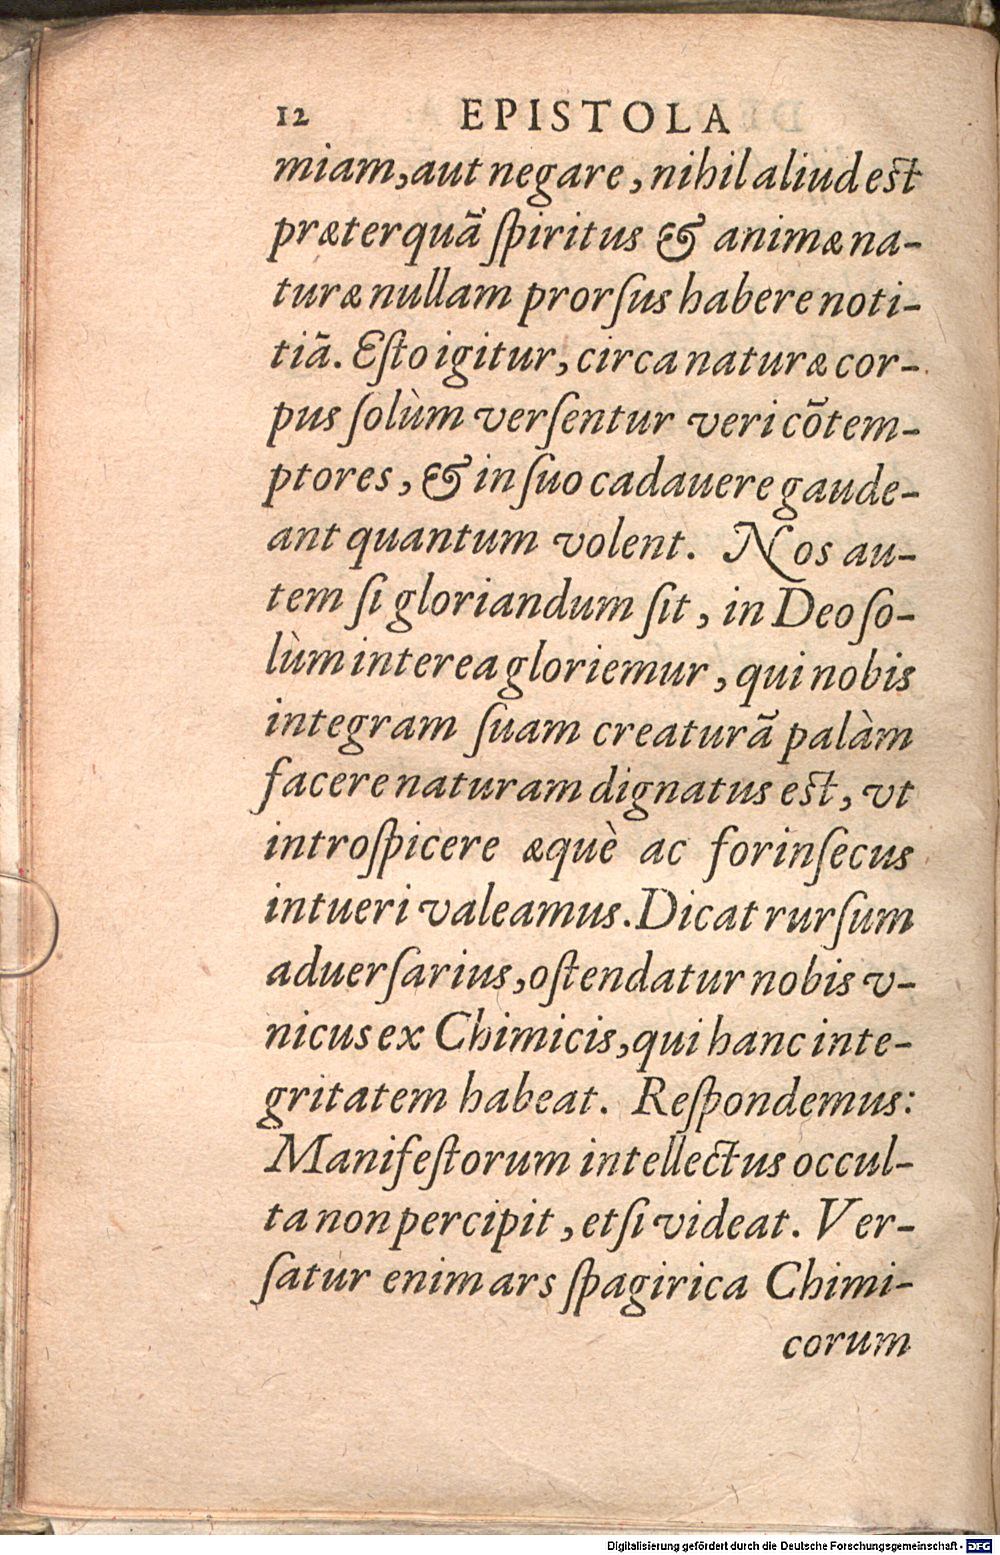 12 EPISTOLA
miam, aut negare, nihil aliud est
præterquā spiritus & animæ na-
turæ nullam prorſus habere noti-
tiā. Eſto igitur, circa naturæ cor-
pus ſolùm verſentur veri cōtem-
ptores, & in ſuo cadauere gaude-
ant quantum volent. Nos au-
tem ſi gloriandum ſit, in Deo ſo-
lùm interea gloriemur, qui nobis
integram ſuam creaturā palàm
facere naturam dignatus est, vt
introſpicere æquè ac forinſecus
intueri valeamus. Dicat rurſum
aduerſarius, oſtendatur nobis v-
nicus ex Chimicis, qui hanc inte-
gritatem habeat. Reſpondemus:
Manifeſtorum intellectus occul-
ta non percipit, etſi videat. Ver-
ſatur enim ars ſpagirica Chimi-
corum
Digitalisierung gefördert durch die Deutsche Forschungsgemeinschaft - DFG